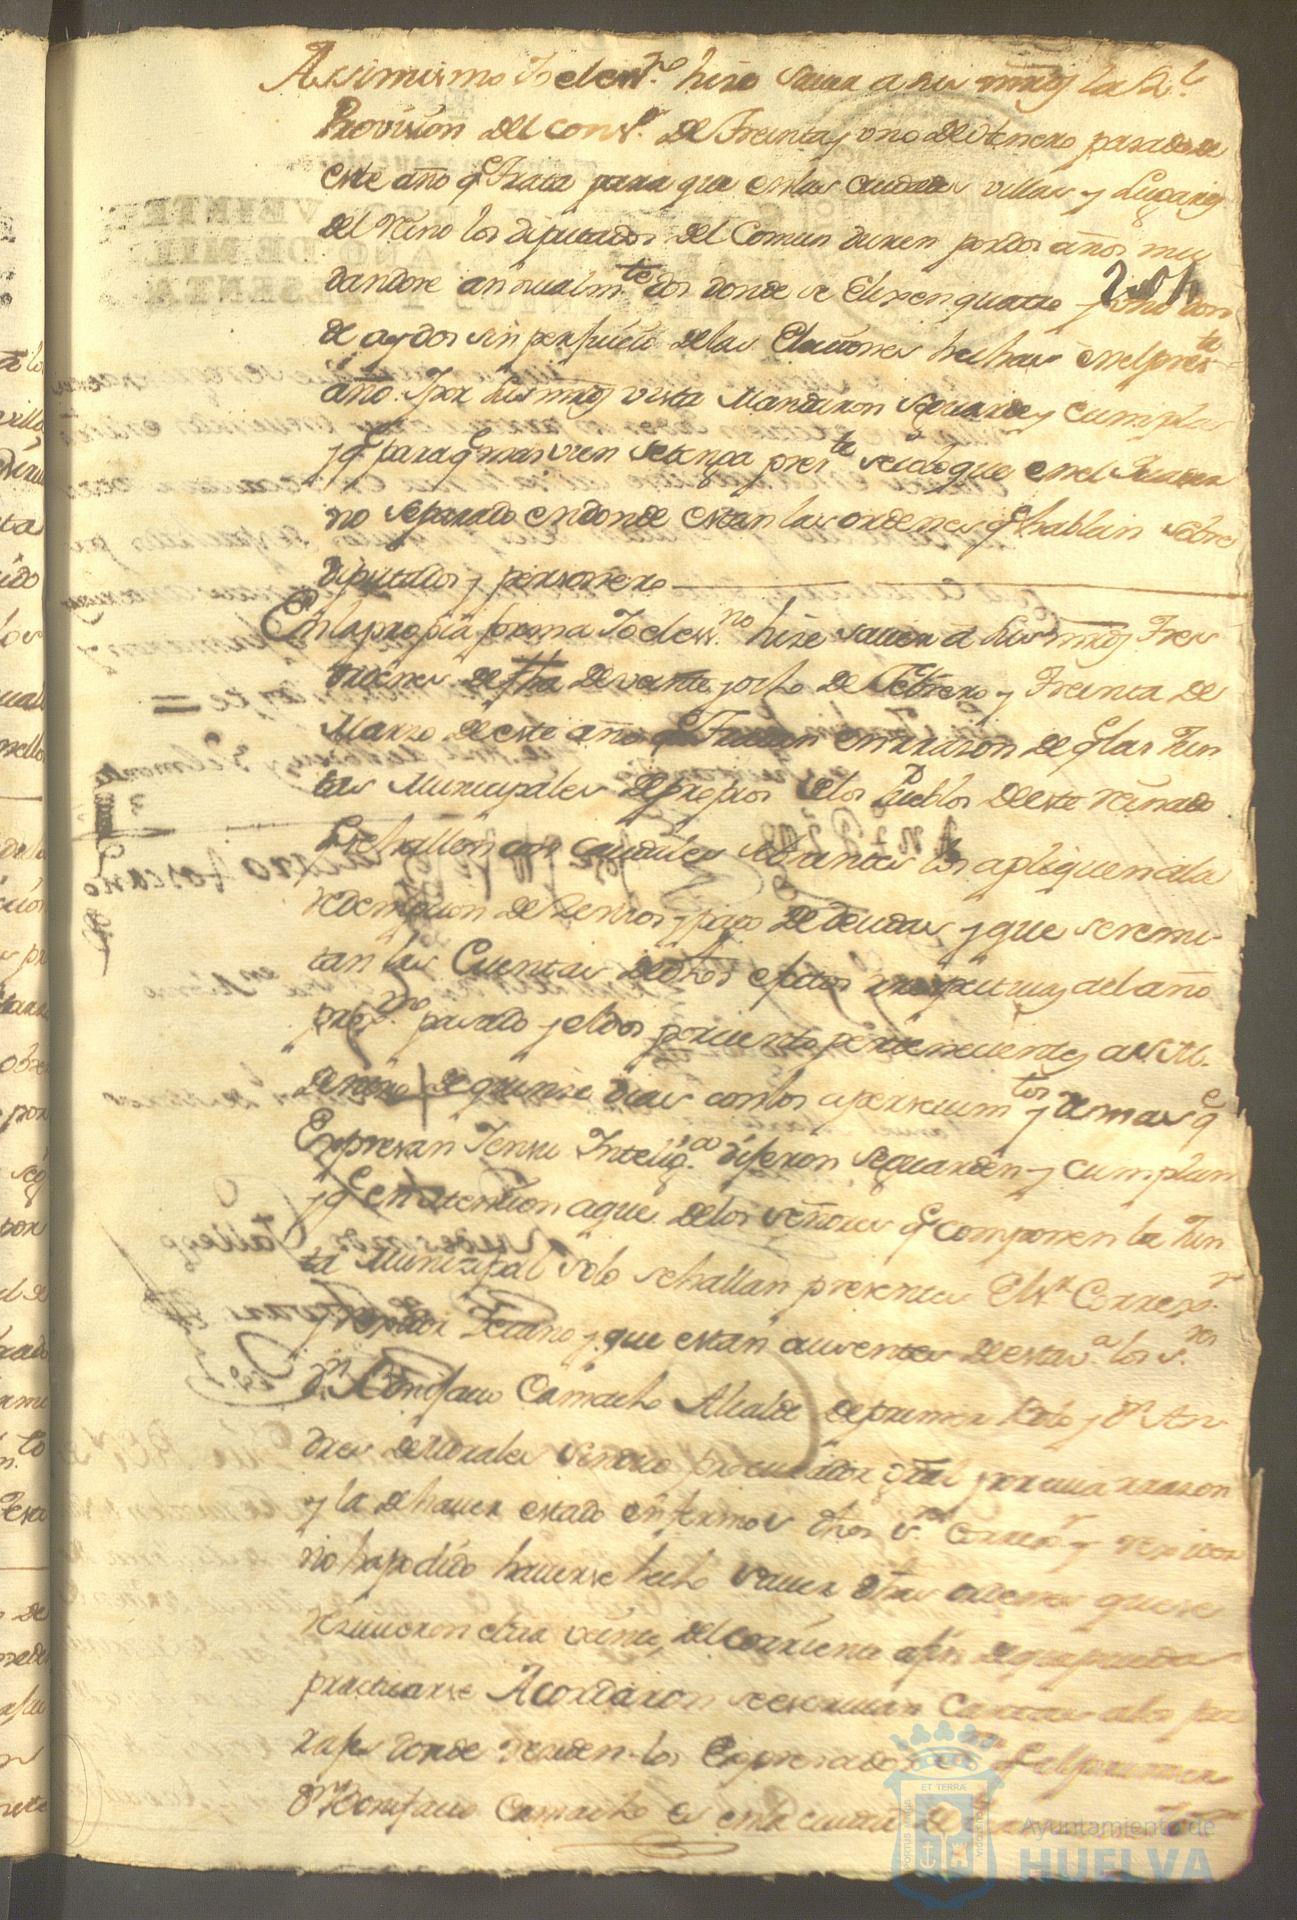 Assimismo Yo el essno. hise sauer a sus mrds la Rl.
Provision del consº. de Treinta y uno de Henero pasado de
este año q Trata para que en las ciudades villas y Lugares
del Reino los diputados del Comun duren por dos años mu
dandose annualmte dos donde se elixen quatro y uno don
204
de ay dos sin perjuicio de las Elecciones hechas en el preste
año. Y por sus mrds vista Mandaron se guarde y cumpla
y q para q mas vien se tenga preste se coloque en el Quader
no separado en donde estan las ordenes q hablan sobre
diputados y personero
En la propia forma Yo el essno hise sauer a sus mrds Tres
ordenes de fha de veinte y ocho de Febrero y Treinta de
Marzo de este año q Tratan en razon de q las Jun
tas Municipales de propios de los Pueblos de este Reinado
q se hallen con caudales sobrantes los apliquen a la
redempcion de Zensos y pago de deudas y que se remi
tan las Cuentas de dhos efectos respectivas del año
prosmo pasado y el dos por ciento pertenecientes a S.M.
dentro de quinse dias con los apersevimtos y demas q
Expresan Y en su Inteligca dijeron se guarden y cumplan
y q en atension a que de los señores q componen la Jun
ta Municipal solo se hallan presentes El sr Correxr.
y rexidor Decano y que estan ausentes de esta va los ses
Dn Bonifacio Camacho Alcalde de primer voto y Dn An
dres de Morales sindico procurador gral por cuia rrason
y la de hauer estado enfermos dhos ses Correxr y rexidor
no ha podido hauerse hecho sauer dhas ordenes que se
resiuieron el dia veinte del corriente a fin de que pueda
practicarse Acordaron se escriuan Cartas a los pa
rajes donde residen los Expresados q el primero
Dn Bonifacio Camacho es en la ciudad de
ET TERRÆ
PORTUS MARIS
CUSTODIA
Ayuntamiento de
HUELVA